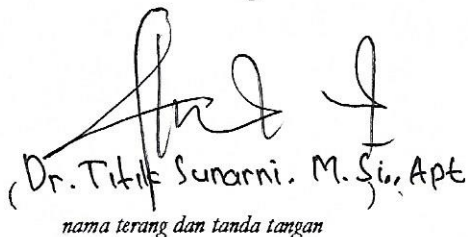 (Dr. Titik Sunarni. M.Si., Apt)
nama terang dan tanda tangan